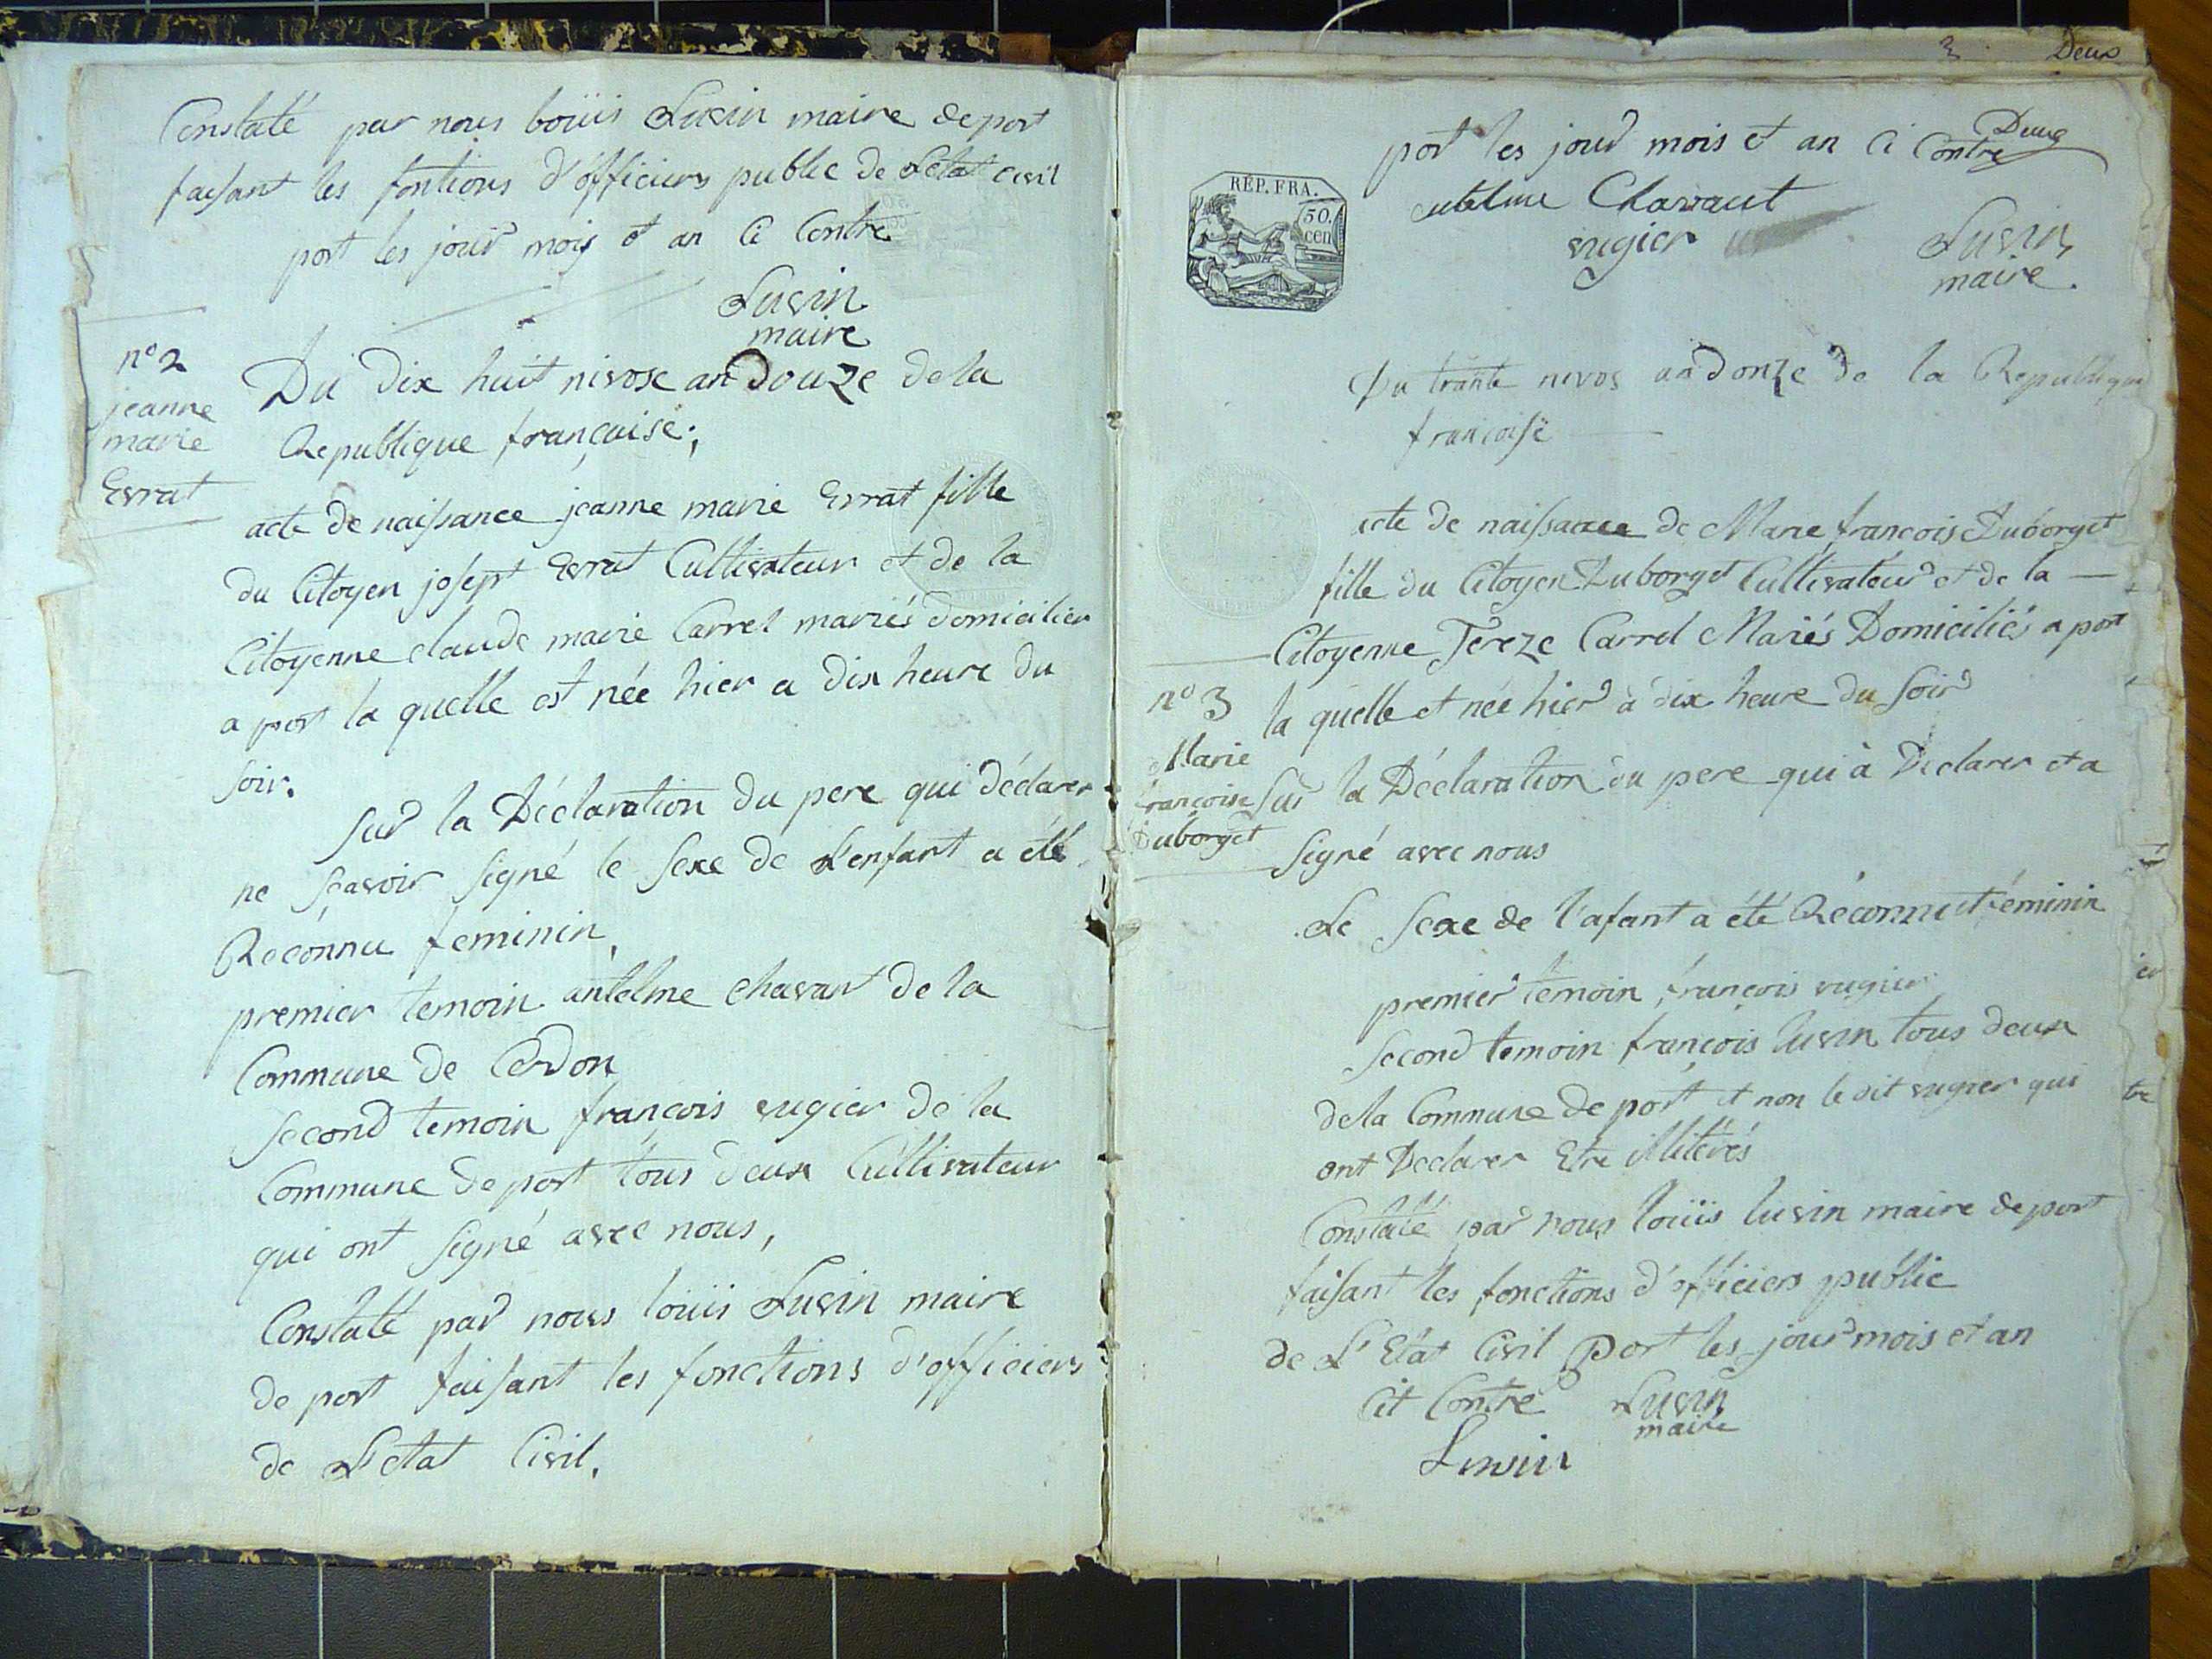 Constaté par nous loüis Luvin maire de port
faisant les fontions d'officiers public de L'etat civil
port les jour mois et an Ci Contre
Luvin
maire
n° 2
jeanne
marie
Evrat
Du Dix huit nivose an Douze de la
Republique française;
acte de naissance jeanne marie Evrat fille
du Citoyen josept Evrat Cultivateur et de la
Citoyenne claude marie Carrel mariés domicilier
a port la quelle est née hier a Dix heure du
soir.
sur la Déclaration du pere qui déclarer
ne scavoir signé le sexe de L'enfant a été
Reconnu feminin,
premier temoin antelme chavan de la
Commune de Cerdon
second temoin françois vugier de la
Commune de port tous deux Cultivateur
qui ont signé avec nous,
Constaté par nous loüis Luvin maire
de port faisant les fonctions d'officiers
de L'etat Civil.
3 Deux
Deux
port les jour mois et an Ci Contre
REP. FRA.
50.
cen
antelme Chavant
vugier
Luvin
maire.
Du trante nivos an donze de la Republique
francoise
acte de naissance de Marie francois Duborget
fille du Citoyen Duborget Cultivateur et de la
Citoyenne Tereze Carrel Mariés Domiciliés a port
la quelle et née hier à dix heure du soir
n° 3
Marie
françoise
Duborget
sur la Déclaration du pere qui à Declarer et a
signé avec nous
Le sexe de l'afant a été Réconnut féminin
premier témoin françois vugier
second temoin françois luvin tous deux
de la Commune de port et non le dit vugier qui
ont Declarer Etre illitérés
Constaté par nous loüis luvin maire de port
faisant les fonctions d'officiers public
de L'Etat Civil port les jour mois et an
Cit Contre Luvin
maire
Luvin